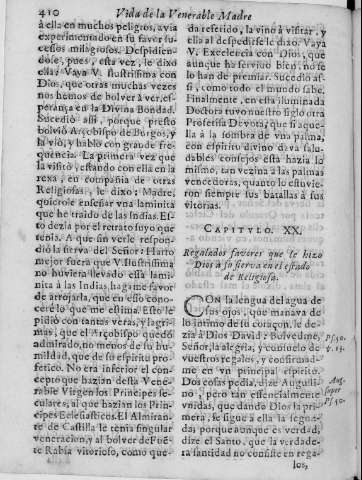 410 Vida de la Venerable Madre
à ella en muchos peligros, avia
experimentado en su favor su-
cessos milagrosos. Despidien-
dose, pues, esta vez, le dixo
ella: Vaya V. Ilustrissima con
Dios, que otras muchas vezes
nos hemos de bolver à ver, es-
perança en la Divina Bondad.
Sucediò assi, porque presto
bolviò Arçobispo de Burgos, y
la viò, y hablò con grande fre-
quencia. La primera vez que
la visitò, estando con ella en la
rexa, en compañia de otras
Religiosas, le dixo: Madre,
quierole enseñar vna laminita
que he traido de las Indias. Es-
to dezia por el retrato suyo que
tenia. A que sin verle respon-
diò la sierva del Señor: Harto
mejor fuera que V. Ilustrissima
no huviera llevado essa lami-
nita à las Indias, hagame favor
de arrojarla, que en esso cono-
cerè lo que me estima. Esto le
pidiò con tantas veras, y lagri-
mas, que el Arçobispo quedò
admirado, no menos de su hu-
mildad, que de su espiritu pro-
fetico. No era inferior el con-
cepto que hazian desta Vene-
rable Virgen los Principes se-
culares, al que hazian los Prin-
cipes Eclesiasticos. El Almiran-
te de Castilla le tenia singular
veneracion, y al bolver de Fuē-
te Rabia vitorioso, como que-
da referido, la vino à visitar, y
ella al despedirse le dixo. Vaya
V. Excelencia con Dios, que
aunque ha servido bien, no se
lo han de premiar. Sucediò as-
si, como todo el mundo sabe.
Finalmente, en esta iluminada
Doctora tuvo nuestro siglo otra
Profetisa Devota; que si aque-
lla à la sombra de vna palma,
con espiritu divino dava salu-
dables consejos esta hazia lo
mismo, tan vezina à las palmas
vencedoras, quanto lo estuvie-
ron siempre sus batallas à sus
vitorias.
CAPITVLO. XX.
Regalados favores que le hizo
Dios à su sierva en el estado
de Religiosa.
CON la lengua del agua de
sus ojos, que manava de
lo intimo de su coraçon, le de-
zia à Dios David: Bolvedme,
Señor, la alegria, y consuelo de
vuestros regalos, y confirmad-
me en vn principal espiritu.
Dos cosas pedia, dize Augusti-
no, pero tan essencialmente
vnidas, que dando Dios la pri-
mera, se sigue à ella la segun-
da; porque aunque es verdad,
dize el Santo, que la verdade-
ra santidad no consiste en rega-
los,
Ps. 50.
Aug.
super
Ps. 50.